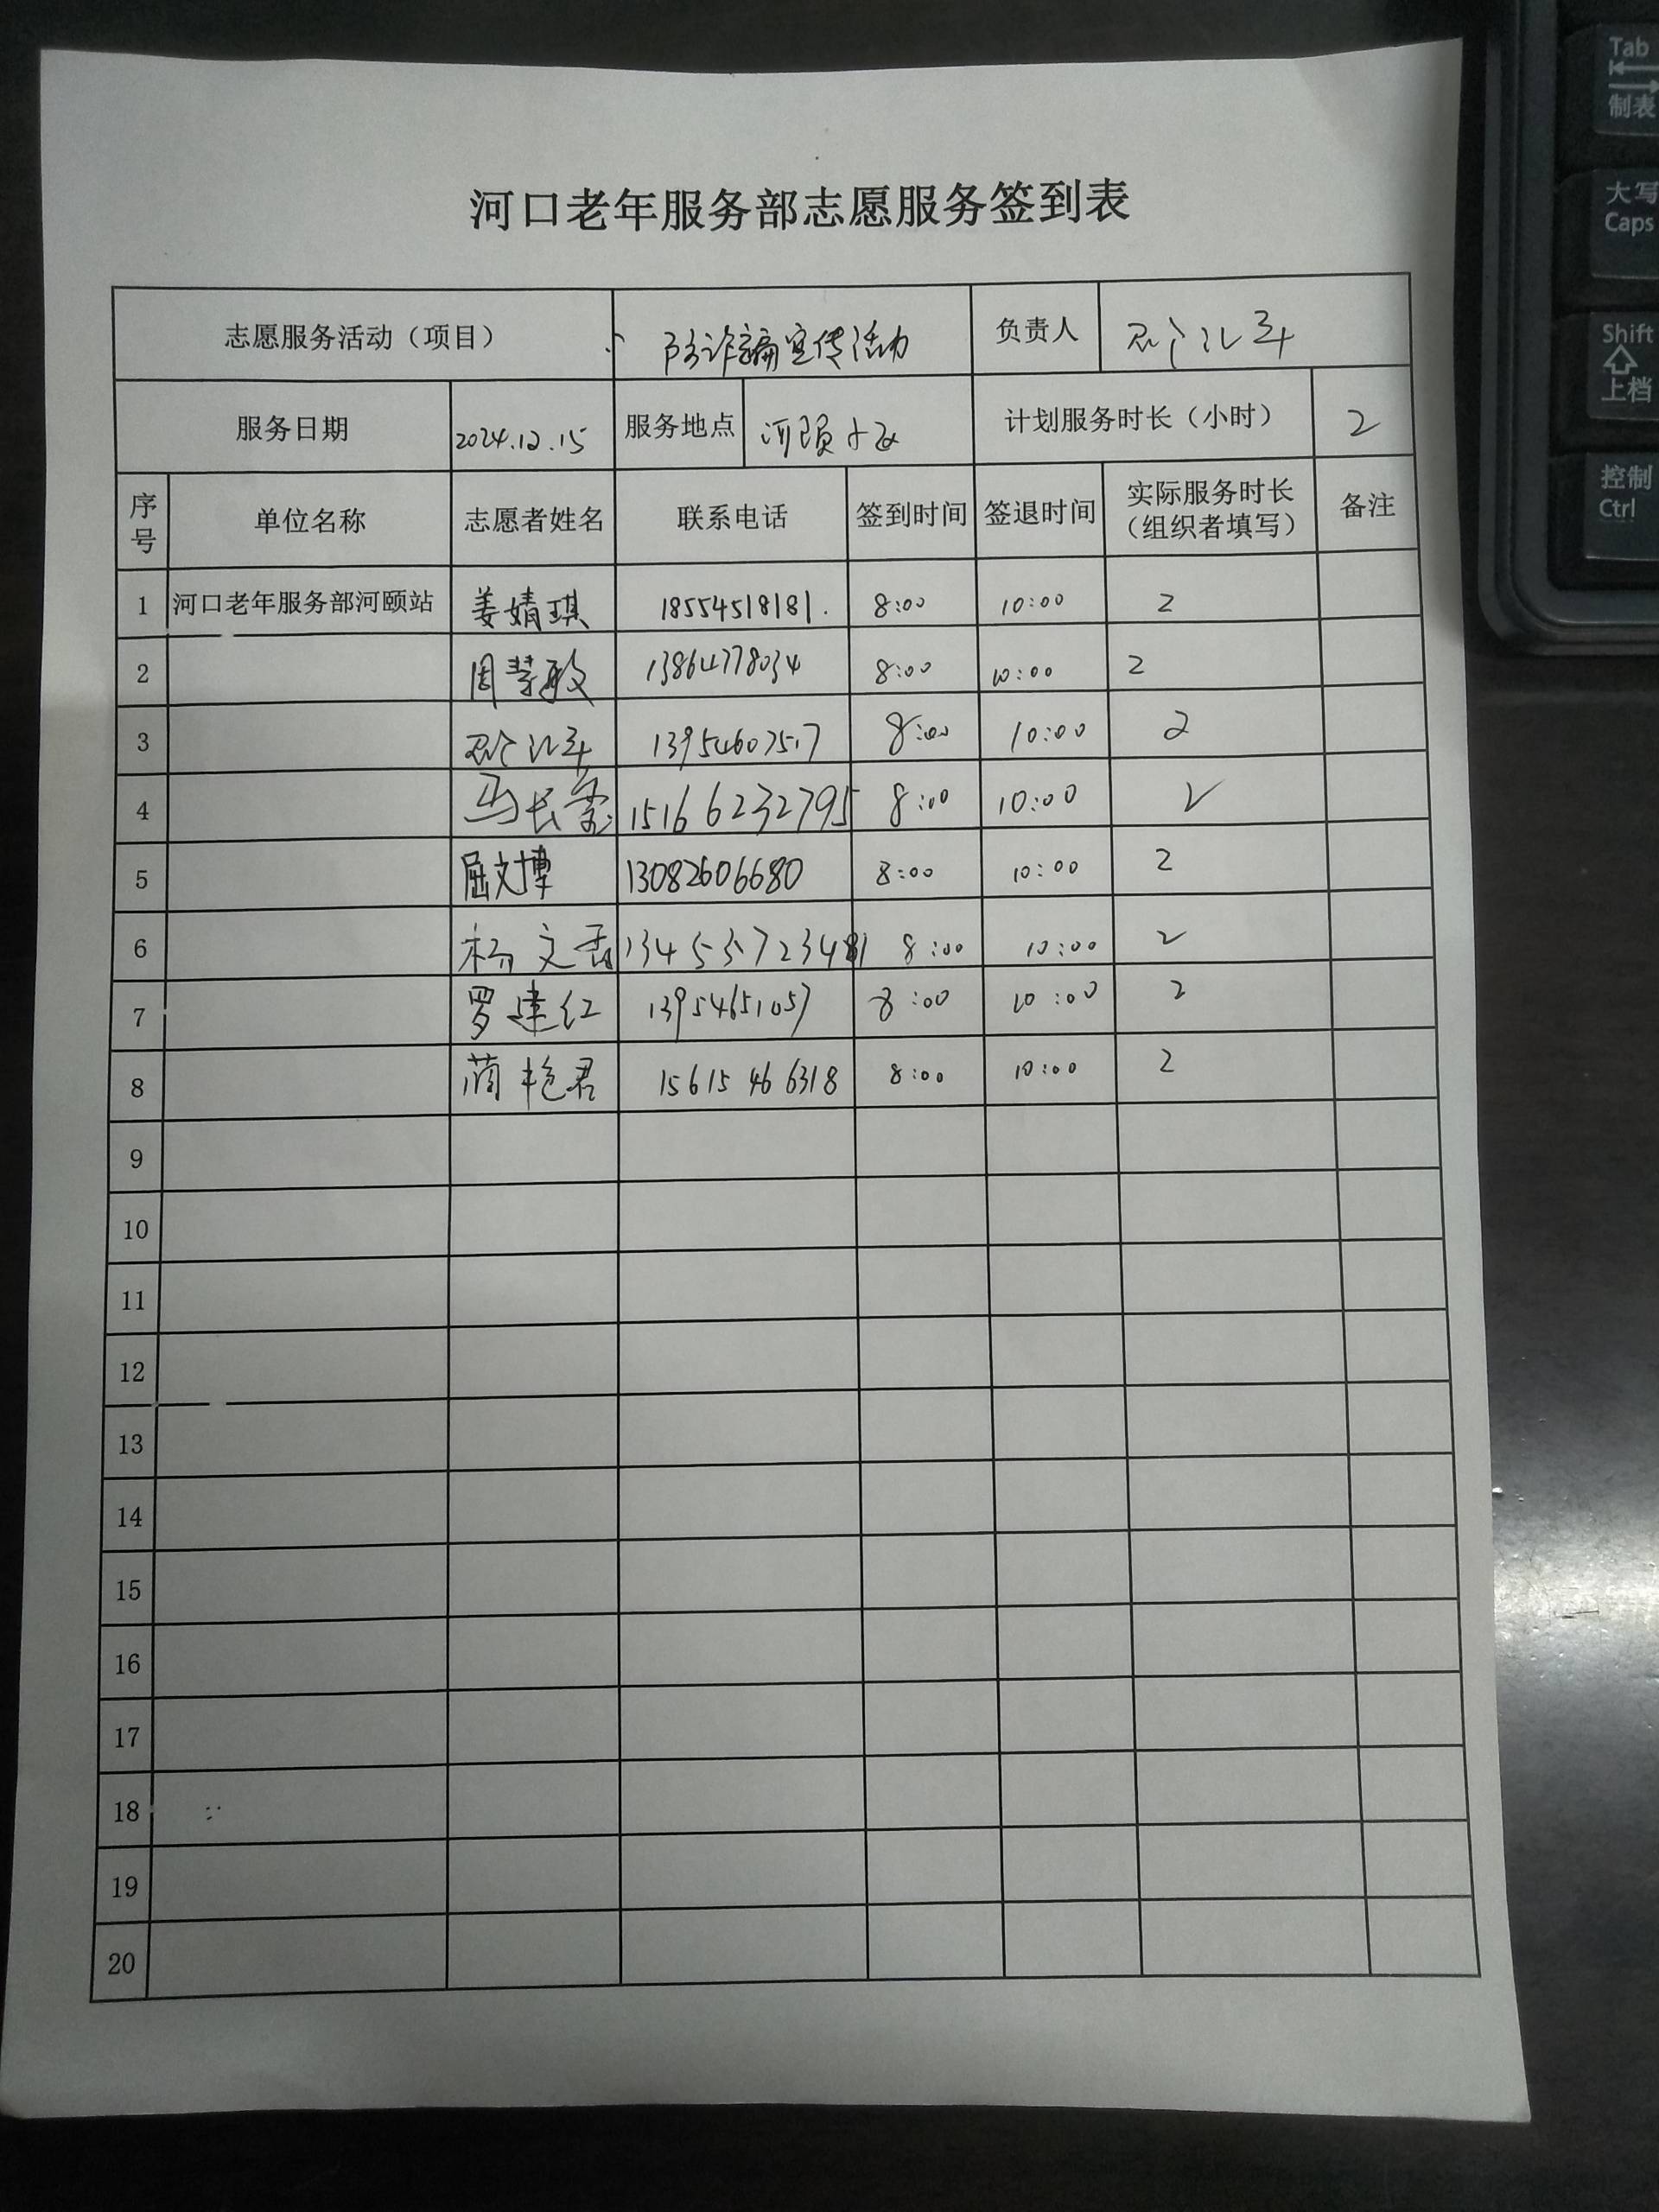 河口老年服务部志愿服务签到表
志愿服务活动（项目） 防诈骗宣传活动 负责人
服务日期 2024.12.15 服务地点 河颐小区 计划服务时长（小时） 2
序号 单位名称 志愿者姓名 联系电话 签到时间 签退时间 实际服务时长（组织者填写） 备注
1 河口老年服务部河颐站 姜婧琪 18554518181. 8:00 10:00 2
2 周慧敏 13864778034 8:00 10:00 2
3 13954607517 8:00 10:00 2
4 马长 15166232795 8:00 10:00 2
5 屈文博 13082606680 8:00 10:00 2
6 杨文 8:00 10:00 2
7 罗建红 13954651057 8:00 10:00 2
8 蔺艳君 15615466318 8:00 10:00 2
9
10
11
12
13
14
15
16
17
18
19
20
Tab
制表
大写
Caps
Shift
上档
控制
Ctrl